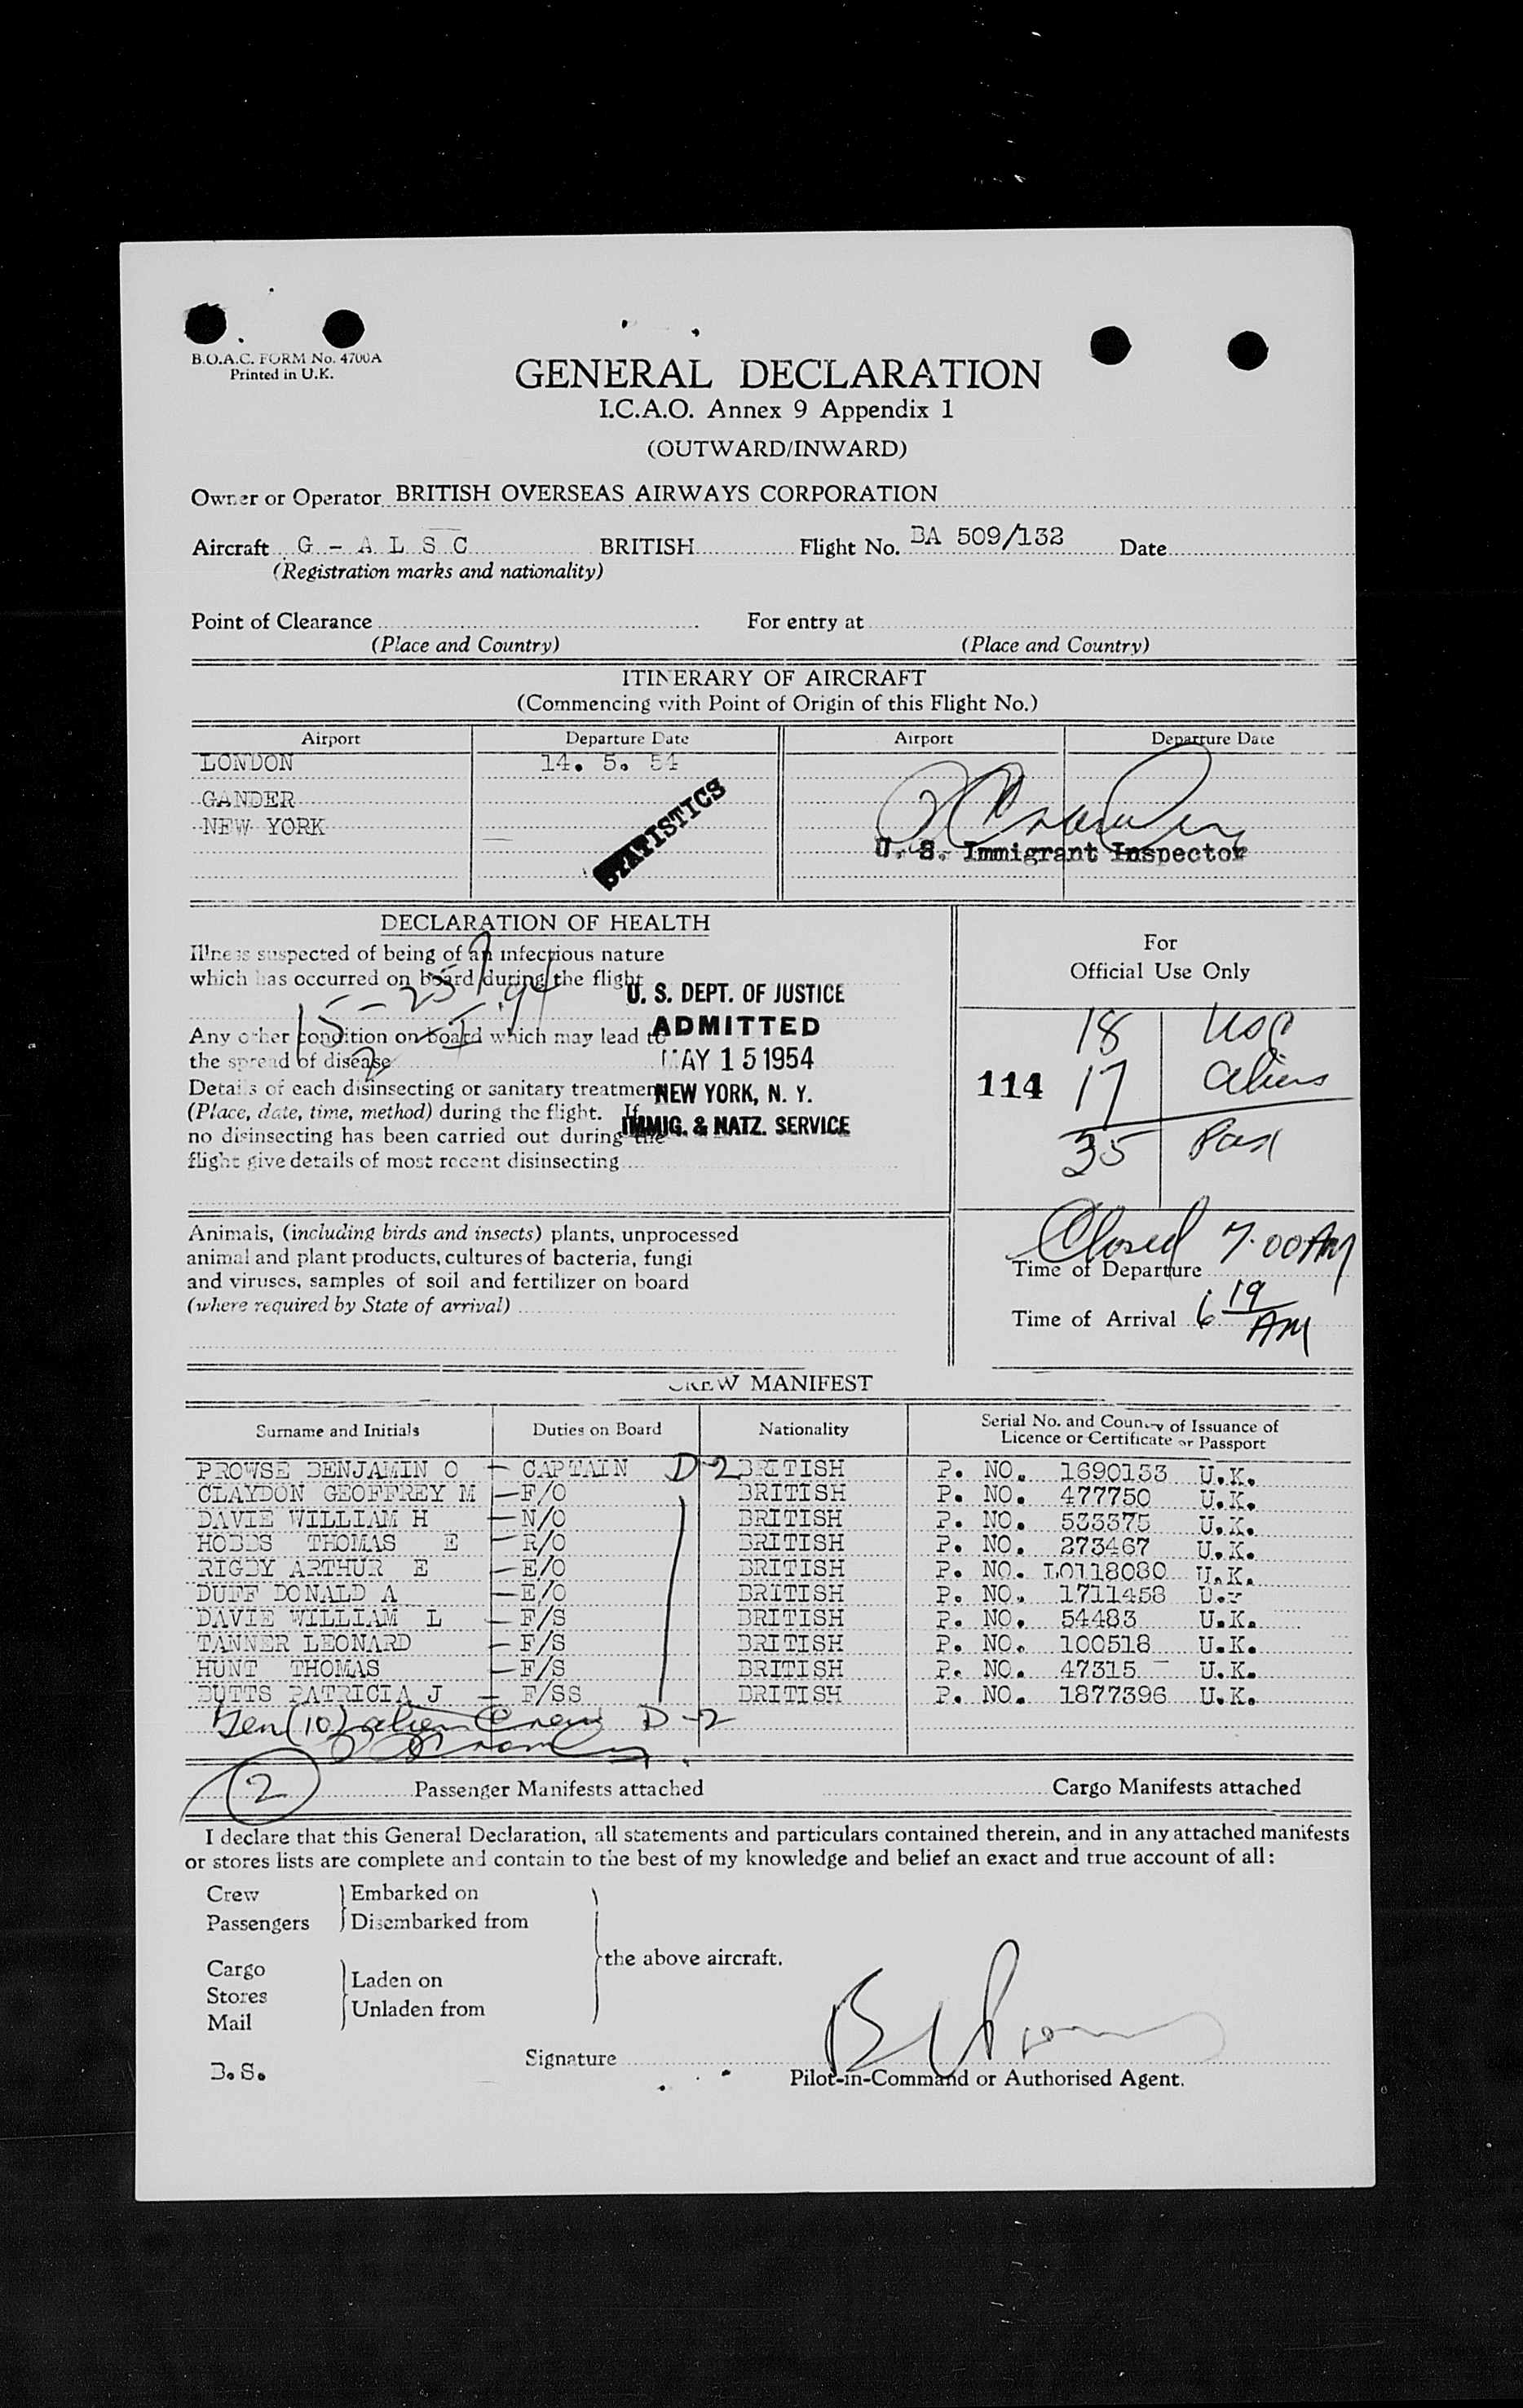 B.O.A.C. FORM No. 4700A
Printed in U.K.
GENERAL DECLARATION
I.C.A.O. Annex 9 Appendix 1
(OUTWARD/INWARD)
Owner or Operator BRITISH OVERSEAS AIRWAYS CORPORATION
Aircraft G - A L S C BRITISH Flight No. BA 509/132 Date
(Registration marks and nationality)
Point of Clearance For entry at
(Place and Country) (Place and Country)
ITINERARY OF AIRCRAFT
(Commencing with Point of Origin of this Flight No.)
Airport Departure Date Airport Departure Date
LONDON 14. 5. 54
GANDER
NEW YORK
STATISTICS
U. S. Immigrant Inspector
DECLARATION OF HEALTH
Illness suspected of being of an infectious nature
which has occurred on board during the flight
Any other condition on board which may lead to
the spread of disease
Details of each disinsecting or sanitary treatment
(Place, date, time, method) during the flight. If
no disinsecting has been carried out during the
flight give details of most recent disinsecting
U. S. DEPT. OF JUSTICE
ADMITTED
MAY 15 1954
NEW YORK, N. Y.
IMMIG. & NATZ. SERVICE
For
Official Use Only
18 USC
114 17 aliens
35 Pax
Animals, (including birds and insects) plants, unprocessed
animal and plant products, cultures of bacteria, fungi
and viruses, samples of soil and fertilizer on board
(where required by State of arrival)
Closed 7.00 AM
Time of Departure
Time of Arrival 6 19 AM
CREW MANIFEST
Surname and Initials Duties on Board Nationality Serial No. and Country of Issuance of
Licence or Certificate or Passport
PROWSE BENJAMIN O - CAPTAIN D-2 BRITISH P. NO. 1690133 U.K.
CLAYDON GEOFFREY M - F/O BRITISH P. NO. 477750 U.K.
DAVIE WILLIAM H - N/O BRITISH P. NO. 533375 U.K.
HOBBS THOMAS E - R/O BRITISH P. NO. 273467 U.K.
RIGBY ARTHUR E - E/O BRITISH P. NO. L0118080 U.K.
DUFF DONALD A - E/O BRITISH P. NO. 1711458 U.K
DAVIE WILLIAM L - F/S BRITISH P. NO. 54483 U.K.
TANNER LEONARD - F/S BRITISH P. NO. 100518 U.K.
HUNT THOMAS - F/S BRITISH P. NO. 47315 U.K.
BUTTS PATRICIA J - F/SS BRITISH P. NO. 1877396 U.K.
Ten (10) alien Crew D-2
2 Passenger Manifests attached Cargo Manifests attached
I declare that this General Declaration, all statements and particulars contained therein, and in any attached manifests
or stores lists are complete and contain to the best of my knowledge and belief an exact and true account of all:
Crew Embarked on
Passengers Disembarked from
the above aircraft.
Cargo Laden on
Stores
Mail Unladen from
B.S. Signature
Pilot-in-Command or Authorised Agent.